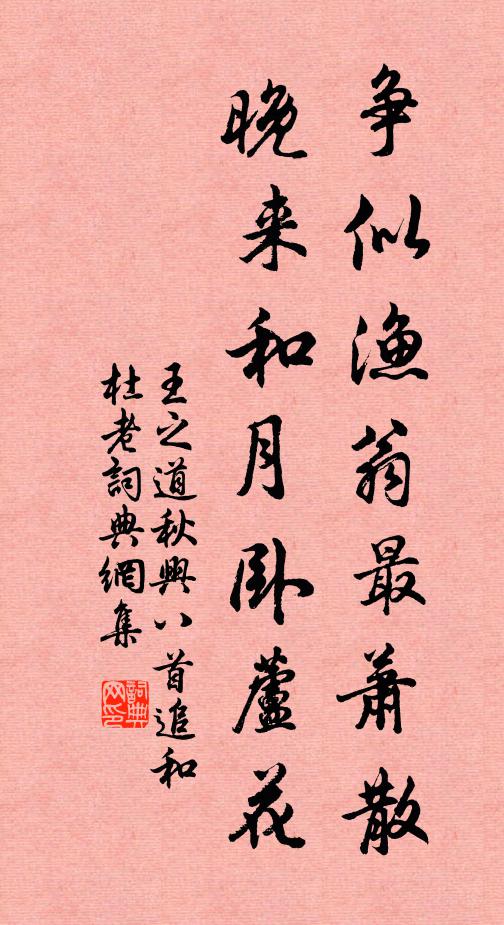 争似渔翁最萧散
晚来和月卧蘆花
王之道秋興八首追和
杜老詞典網集
詞典
网印